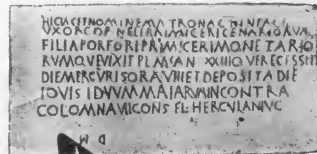 HIC IACET NOMINE MATRONA C F IN PACE
VXOR CORNELI PRIMICERI CENARIORVM
FILIA PORFORI PRIMICERI MONETARIO
RVM QVE VIXIT PL M AN XXIIII QV RECESSIT
DIE MERCVRIS ORA VIII ET DEPOSITA DIE
IOVIS IDVVM MAIARVM IN CONTRA
COLOMNA VII CONS FL HERCVLANI VC